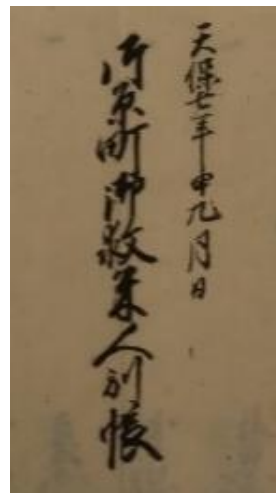 天保七年申九月日
河原町御救米人別帳